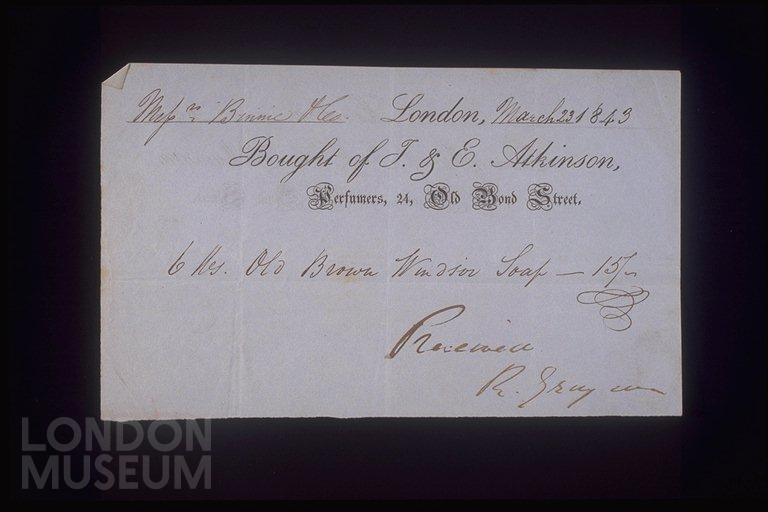 Messrs Binnie & Co. London, March 23 1843
Bought of J. & E. Atkinson,
Perfumers, 24, Old Bond Street.
6 lbs. Old Brown Windsor Soap — 15/-
Received
R.
LONDON
MUSEUM